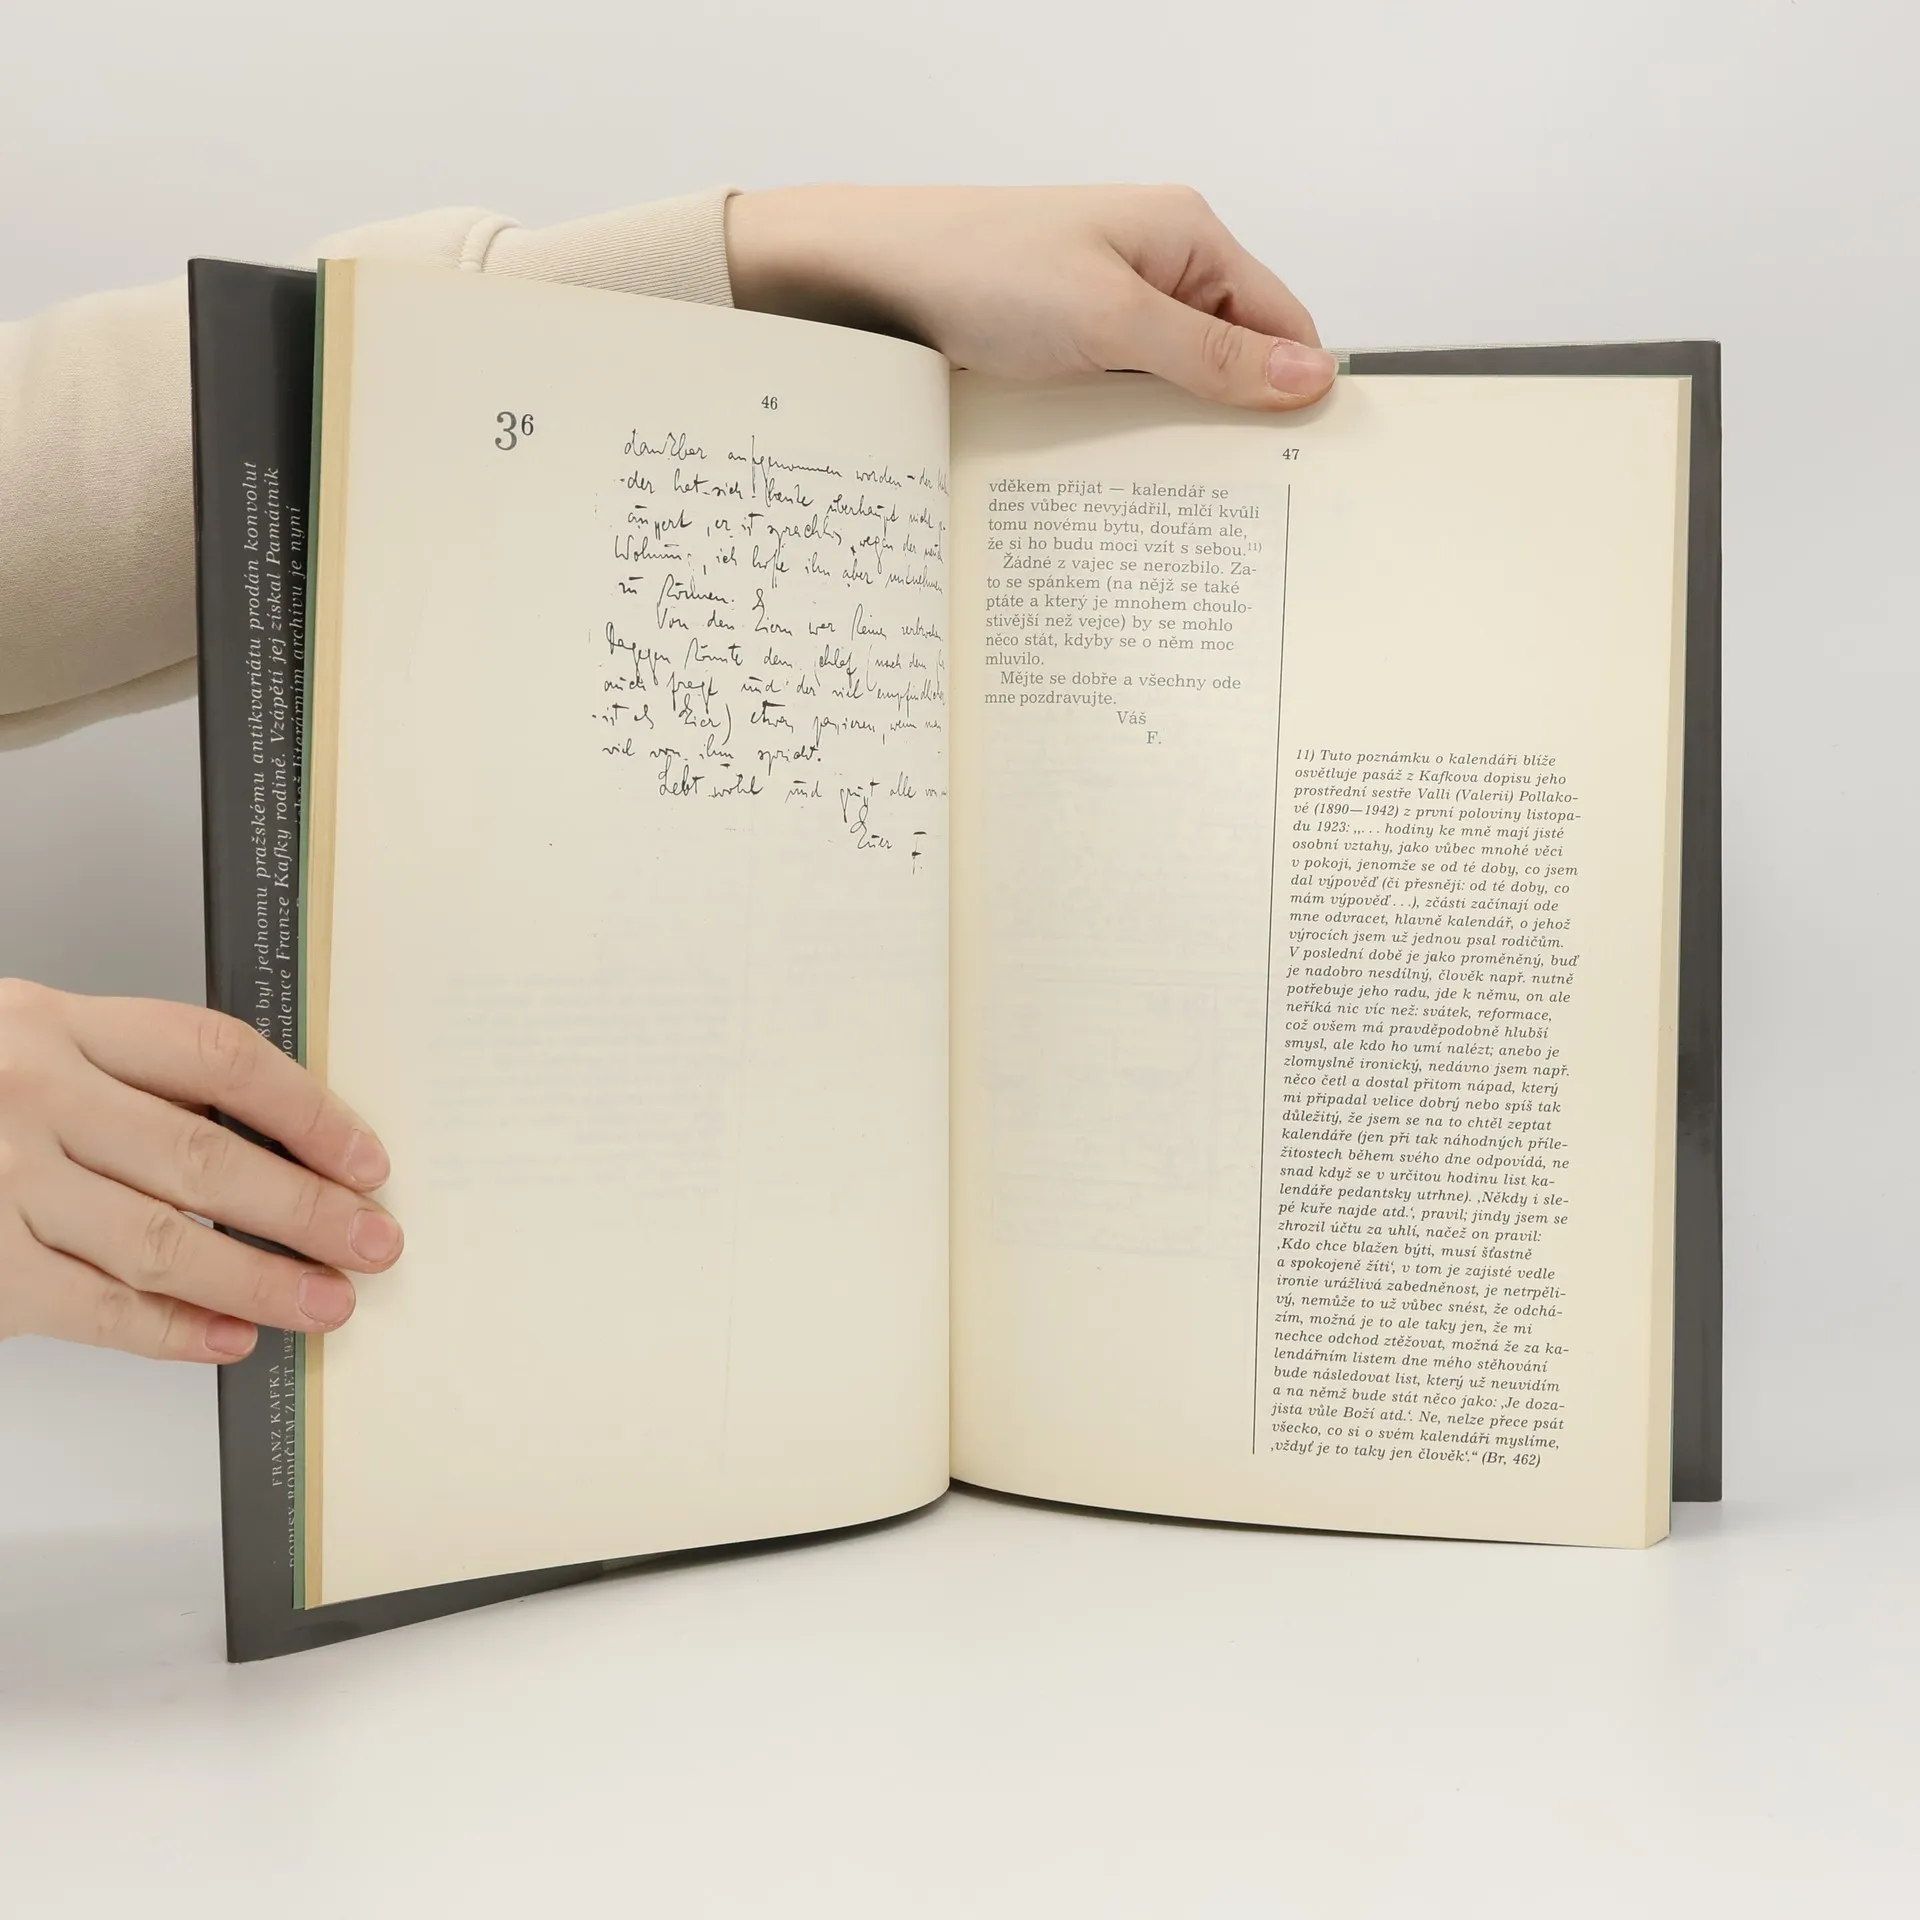 konvolut
byl jednomu pražskému antikvariátu prodán konvolut
Franze Kafky rodině. Vzápětí jej získal Památník
literárním archivu je nyní
FRANZ KAFKA
DOPISY RODIČŮM Z LET 1922
46
3⁶
dankbar aufgenommen worden – der
der hat sich heute überhaupt nicht
äußert, er ist sprachlos wegen der
Wohnung, ich hoffe ihn aber mitnehmen
zu können.
Von den Eiern war keines zerbrochen.
Dagegen könnte dem Schlaf (nach dem
auch fragt und der viel empfindlicher
ist als Eier) etwas passieren, wenn man
viel von ihm spricht.
Lebt wohl und grüßt alle von
Euer F.
47
vděkem přijat — kalendář se
dnes vůbec nevyjádřil, mlčí kvůli
tomu novému bytu, doufám ale,
že si ho budu moci vzít s sebou.¹¹⁾
Žádné z vajec se nerozbilo. Za-
to se spánkem (na nějž se také
ptáte a který je mnohem choulo-
stivější než vejce) by se mohlo
něco stát, kdyby se o něm moc
mluvilo.
Mějte se dobře a všechny ode
mne pozdravujte.
Váš
F.
11) Tuto poznámku o kalendáři blíže
osvětluje pasáž z Kafkova dopisu jeho
prostřední sestře Valli (Valerii) Pollako-
vé (1890—1942) z první poloviny listopa-
du 1923: „. . . hodiny ke mně mají jisté
osobní vztahy, jako vůbec mnohé věci
v pokoji, jenomže se od té doby, co jsem
dal výpověď (či přesněji: od té doby, co
mám výpověď . . .), zčásti začínají ode
mne odvracet, hlavně kalendář, o jehož
výrocích jsem už jednou psal rodičům.
V poslední době je jako proměněný, buď
je nadobro nesdílný, člověk např. nutně
potřebuje jeho radu, jde k němu, on ale
neříká nic víc než: svátek, reformace,
což ovšem má pravděpodobně hlubší
smysl, ale kdo ho umí nalézt; anebo je
zlomyslně ironický, nedávno jsem např.
něco četl a dostal přitom nápad, který
mi připadal velice dobrý nebo spíš tak
důležitý, že jsem se na to chtěl zeptat
kalendáře (jen při tak náhodných příle-
žitostech během svého dne odpovídá, ne
snad když se v určitou hodinu list ka-
lendáře pedantsky utrhne). ‚Někdy i sle-
pé kuře najde atd.‘, pravil; jindy jsem se
zhrozil účtu za uhlí, načež on pravil:
‚Kdo chce blažen býti, musí šťastně
a spokojeně žíti‘, v tom je zajisté vedle
ironie urážlivá zabedněnost, je netrpěli-
vý, nemůže to už vůbec snést, že odchá-
zím, možná je to ale taky jen, že mi
nechce odchod ztěžovat, možná že za ka-
lendářním listem dne mého stěhování
bude následovat list, který už neuvidím
a na němž bude stát něco jako: ‚Je doza-
jista vůle Boží atd.‘. Ne, nelze přece psát
všecko, co si o svém kalendáři myslíme,
‚vždyť je to taky jen člověk‘.“ (Br, 462)